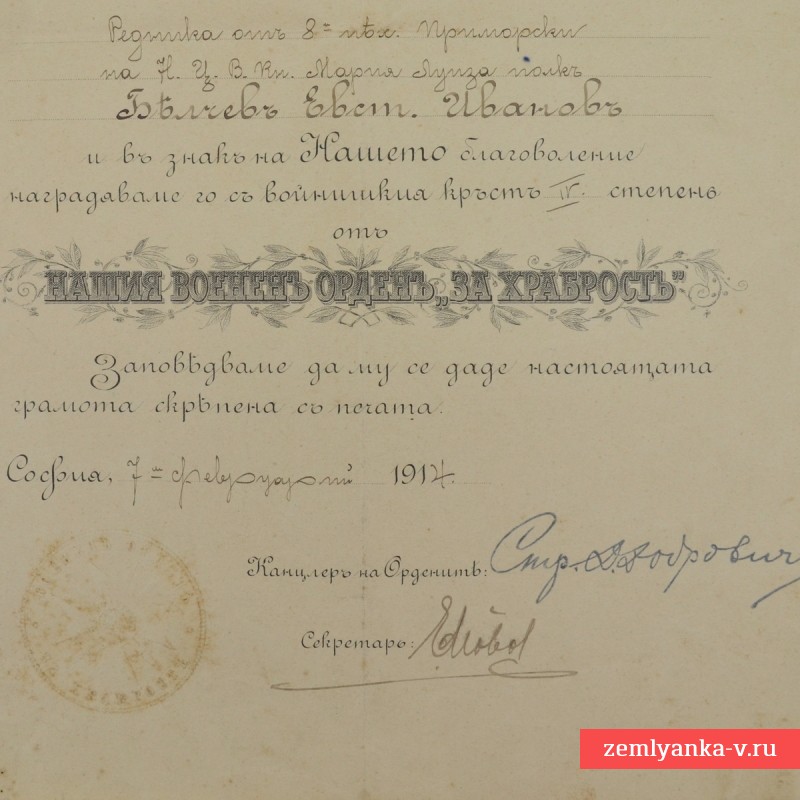 Редника отъ 8ⁿ пѣх. Приморски
на Н. Ц. В. Кн. Мария Луиза полкъ
Бѣлчевъ Евст. Ивановъ
и въ знакъ на Нашето благоволение
наградяваме го съ войнишкия кръстъ IV. степень
отъ
НАШИЯ ВОЕНЕНЪ ОРДЕНЪ „ЗА ХРАБРОСТЬ"
Заповѣдваме да му се даде настоящата
грамота скрѣпена съ печата.
София, 7ⁿ февруарий 1914.
Канцлеръ на Орденитѣ: Стр. Д. Добровичъ
Секретаръ:
zemlyanka-v.ru